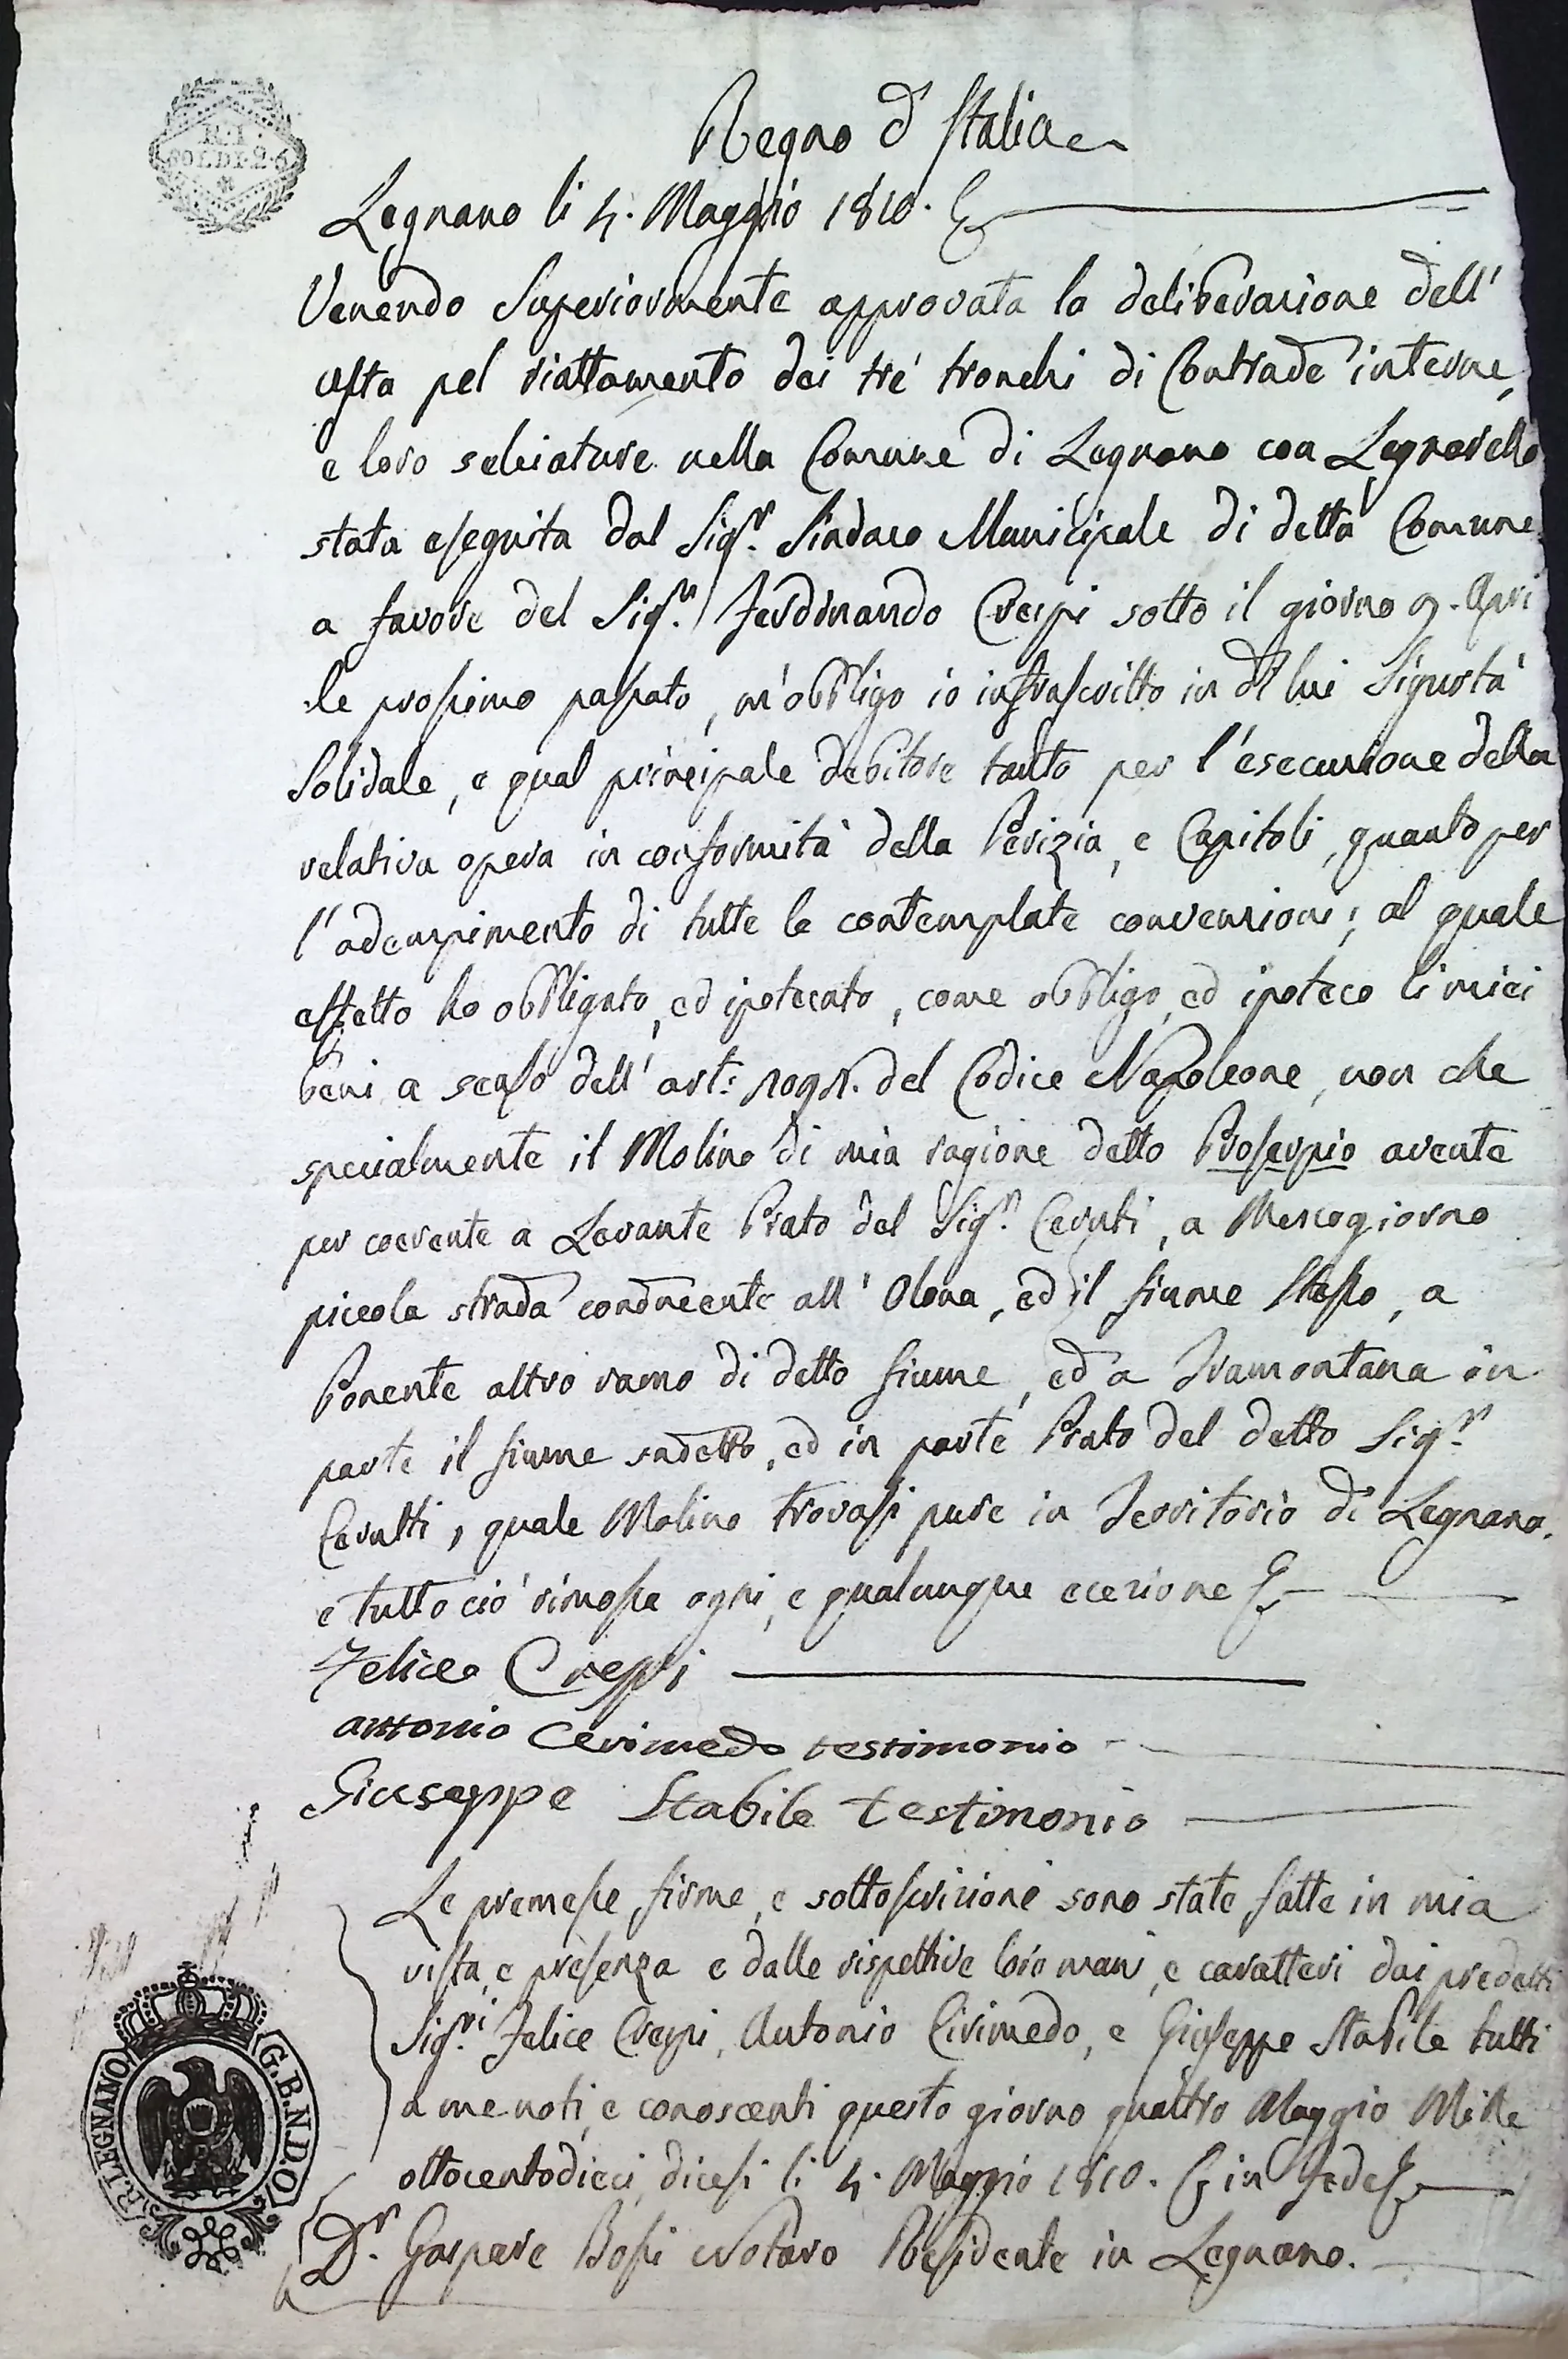 R. I.
SOLDI. 2. 6
Regno d'Italia
Legnano li 4. Maggio 1810.
Venendo Superiormente approvata la deliberazione dell'
asta pel riattamento dei tre' tronchi di Contrade interne,
e loro selciature nella Comune di Legnano con Legnarello
stata eseguita dal Sigr. Sindaco Municipale di detta Comune
a favore del Sigr. Ferdinando Crespi sotto il giorno 9. Apri
le prossimo passato, m'obbligo io infrascritto in di lui Sigurtà
Solidale, e qual principale debitore tanto per l'esecuzione della
relativa opera in conformità della Perizia, e Capitoli, quanto per
l'adempimento di tutte le contemplate convenzioni; al quale
effetto ho obbligato, ed ipotecato, come obbligo, ed ipoteco li miei
beni a senso dell'art: del Codice Napoleone, non che
specialmente il Molino di mia ragione detto Proserpio avente
per coerente a Levante Prato del Sigr. Ceruti, a Mezzogiorno
piccola strada conducente all'Olona, ed il fiume stesso, a
Ponente altro ramo di detto fiume, ed a Tramontana in
parte il fiume sudetto, ed in parte Prato del detto Sigr.
Cerutti, quale Molino trovasi pure in Territorio di Legnano.
e tutto ciò rimossa ogni, e qualunque ecezione
Felice Crespi
antonio Cerimedo testimonio
Giuseppe Stabile testimonio
Le premesse firme, e sottoscrizioni sono state fatte in mia
vista, e presenza e dalle rispettive loro mani, e caratteri dai predetti
Sigri. Felice Crespi, Antonio Cirimedo, e Giuseppe Stabile tutti
a me noti, e conoscenti questo giorno quattro Maggio Mille
ottocentodieci, dicesi li 4. Maggio 1810. in fede
Dr. Gaspare Bossi Notaro Residente in Legnano.
G.B.N.D.O.
R. LEGNANO